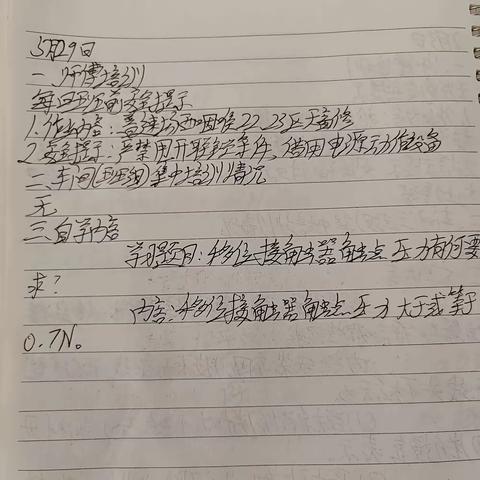 5月29日
一、师傅培训
每日班前安全提示
1.作业内容:普速场西咽喉22、23区天窗修
2.安全提示:严禁甩开联锁条件,借用电源动作设备
二、车间(班组)集中培训情况
无
三、自学内容
学习题目:移位接触器触点压力有何要
求?
内容:移位接触器触点压力大于或等于
0.7N。